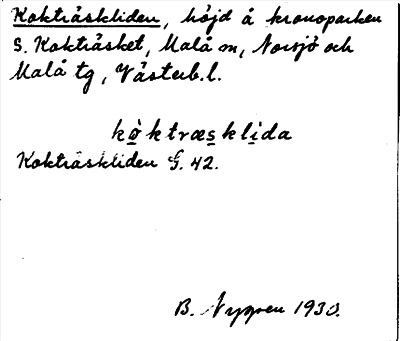 Kokträskliden, höjd å kronoparken
S. Kokträsket, Malå sn, Norsjö och
Malå tg, Västerb. l.
kòktræsklida
Kokträskliden G. 42.
B. Nygren 1930.